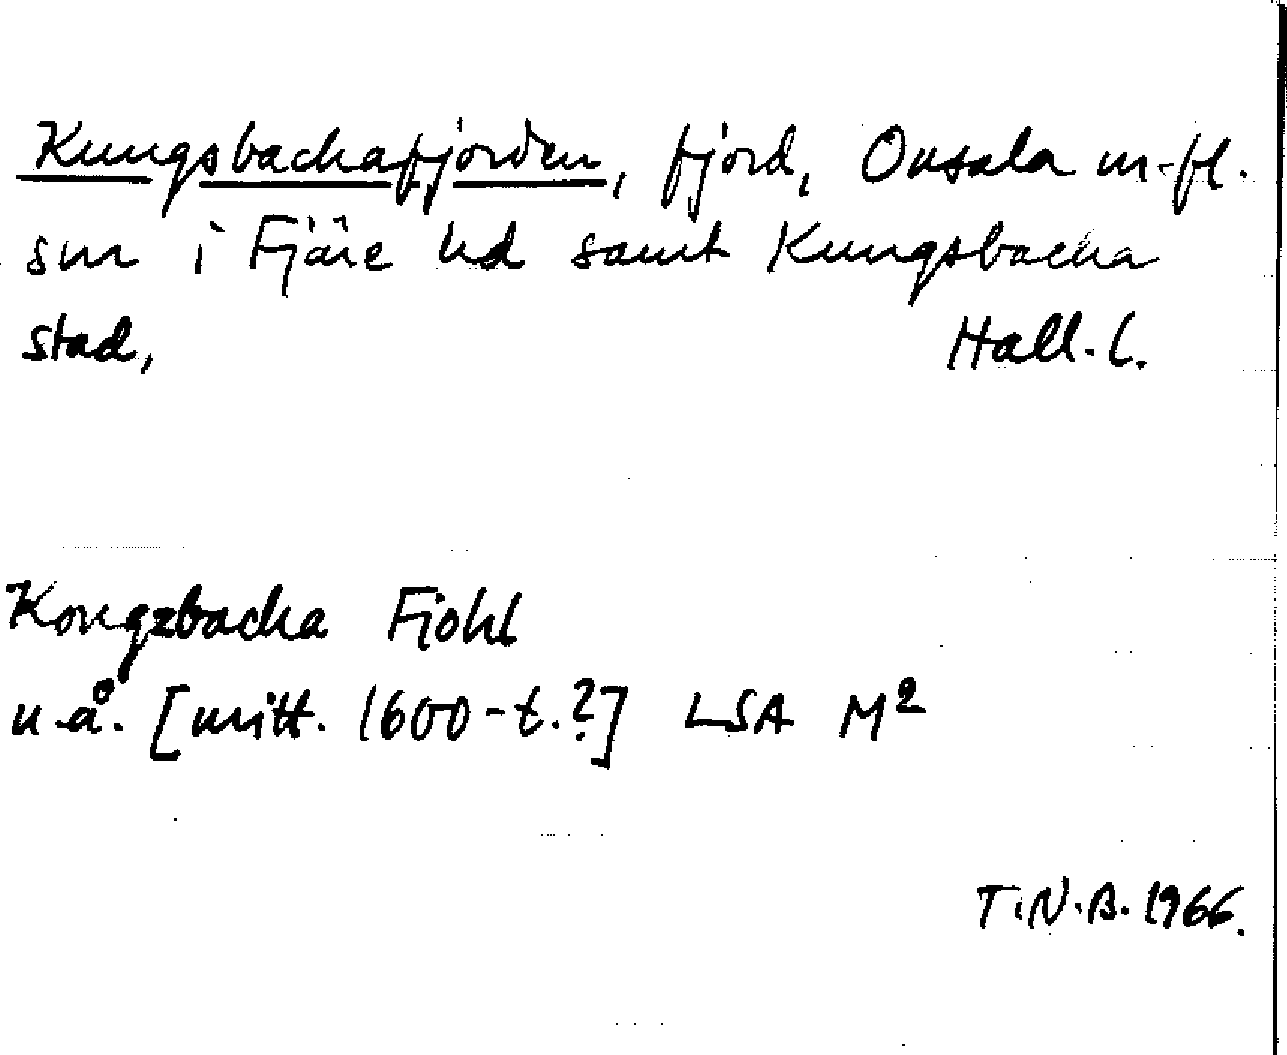 Kungsbackafjorden, fjord, Onsala m.fl.
snr i Fjäre hd samt Kungsbacka
stad, Hall. l.
Kongzbacka Fiohl
u.å. [mitt. 1600-t.?] LSA M²
T.N.B. 1966.